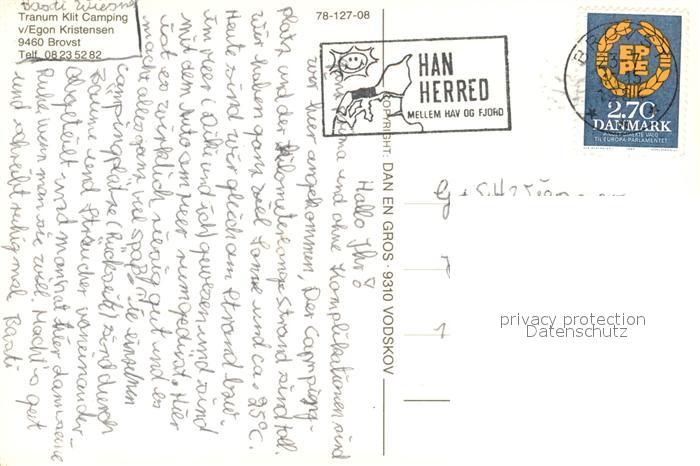 Basti Wiesner
Tranum Klit Camping
v/Egon Kristensen
9460 Brovst
Telf. 08 23 52 82
78-127-08
HAN
HERRED
MELLEM HAV OG FJORD
2.70
DANMARK
TIL EUROPA-PARLAMENTET
COPYRIGHT: DAN EN GROS 9310 VODSKOV
Hallo Ihr!
prima und ohne Komplikationen sind
wir hier angekommen. Der Camping-
platz und der kilometerlange Strand sind toll.
Wir haben ganz viel Sonne und ca. 25°C.
Heute sind wir gleich am Strand bzw.
im Meer (Silb und ich) gewesen und sind
mit dem Auto am Meer rumgedüst. Hier
ist es wirklich riesig gut und es
macht alles ganz viel Spaß. Die einzelnen
Campingplätze (Rückseite) sind durch
Bäume und Sträucher voneinander
abgeteilt und man hat hier dann seine
Ruhe wenn man sie will. Macht's gut
und schreibt ruhig mal Basti
privacy protection
Datenschutz